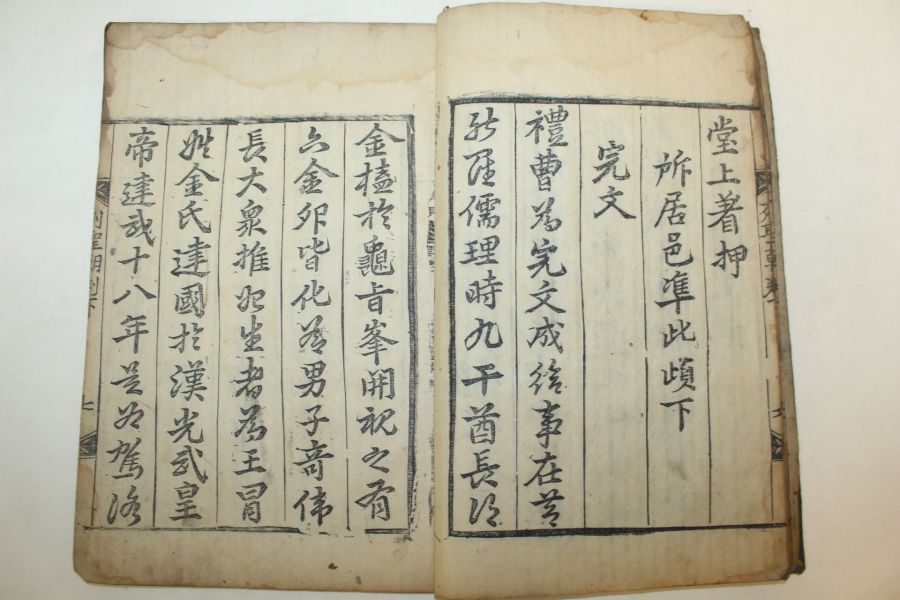 堂上着押
所居邑準此頉下
完文
禮曹為完文成給事在昔
新羅儒理時九干酋長得
金榼於龜旨峯開視之有
六金卵皆化為男子奇偉
長大衆推始生者為王冒
姓金氏建國於漢光武皇
帝建武十八年是為駕洛